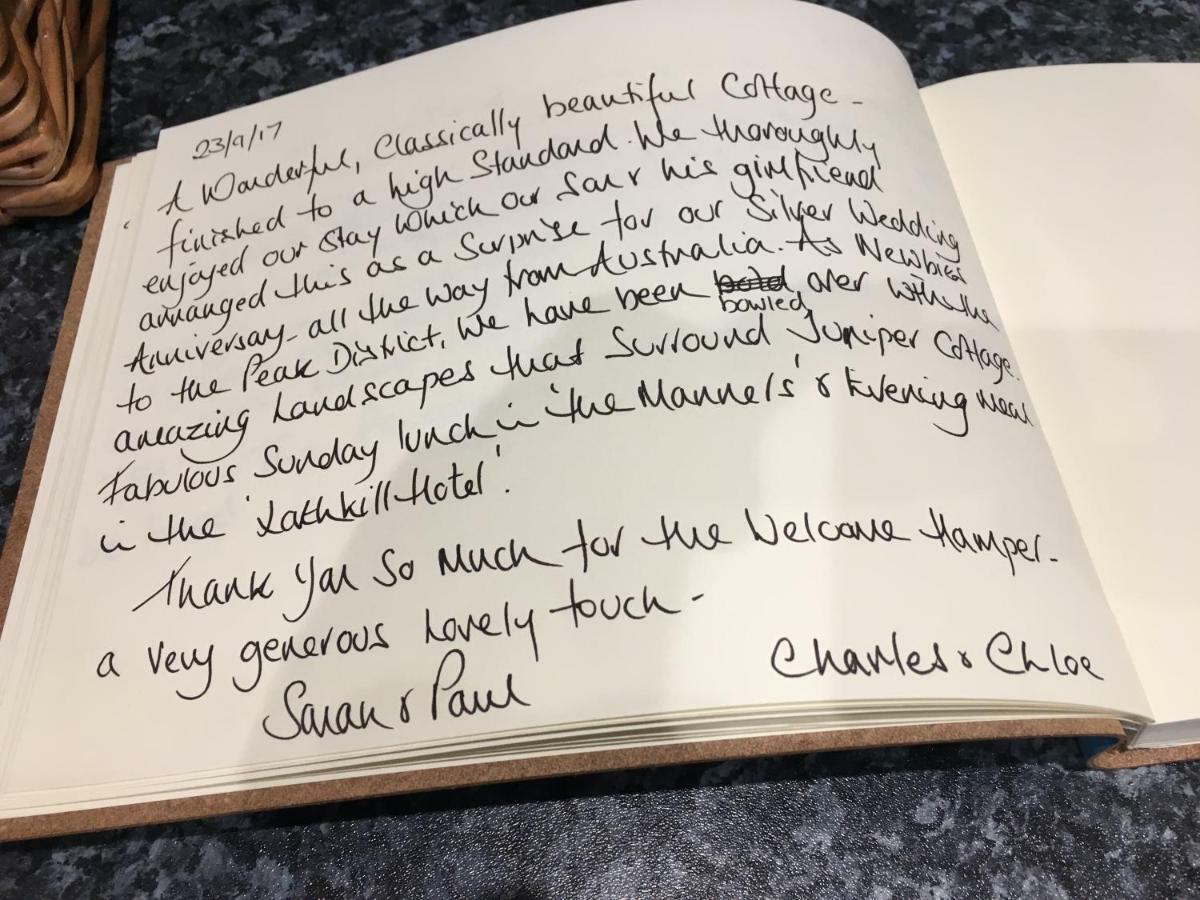 23/9/17
A Wonderful, Classically beautiful Cottage -
finished to a high Standard. We thoroughly
enjoyed our stay which our Son & his girlfriend
arranged this as a Surprise for our Silver Wedding
Anniversary - all the way from Australia. As Newbies
to the Peak District, we have been bowled over with the
amazing Landscapes that Surround Juniper Cottage.
Fabulous Sunday lunch in 'the Manners' & Evening meal
in the 'Lathkill Hotel'.
Thank You So Much for the Welcome Hamper -
a very generous Lovely touch -
Sarah & Paul
Charles & Chloe